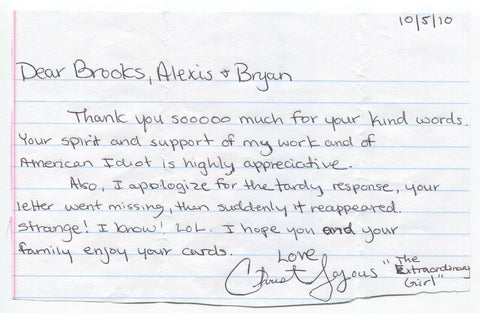 10/5/10
Dear Brooks, Alexis + Bryan
Thank you sooooo much for your kind words.
Your spirit and support of my work and of
American Idiot is highly appreciative.
Also, I apologize for the tardy response, your
letter went missing, then suddenly it reappeared.
strange! I know! LOL. I hope you and your
family enjoy your cards.
Love
"The
Extraordinary
Girl"